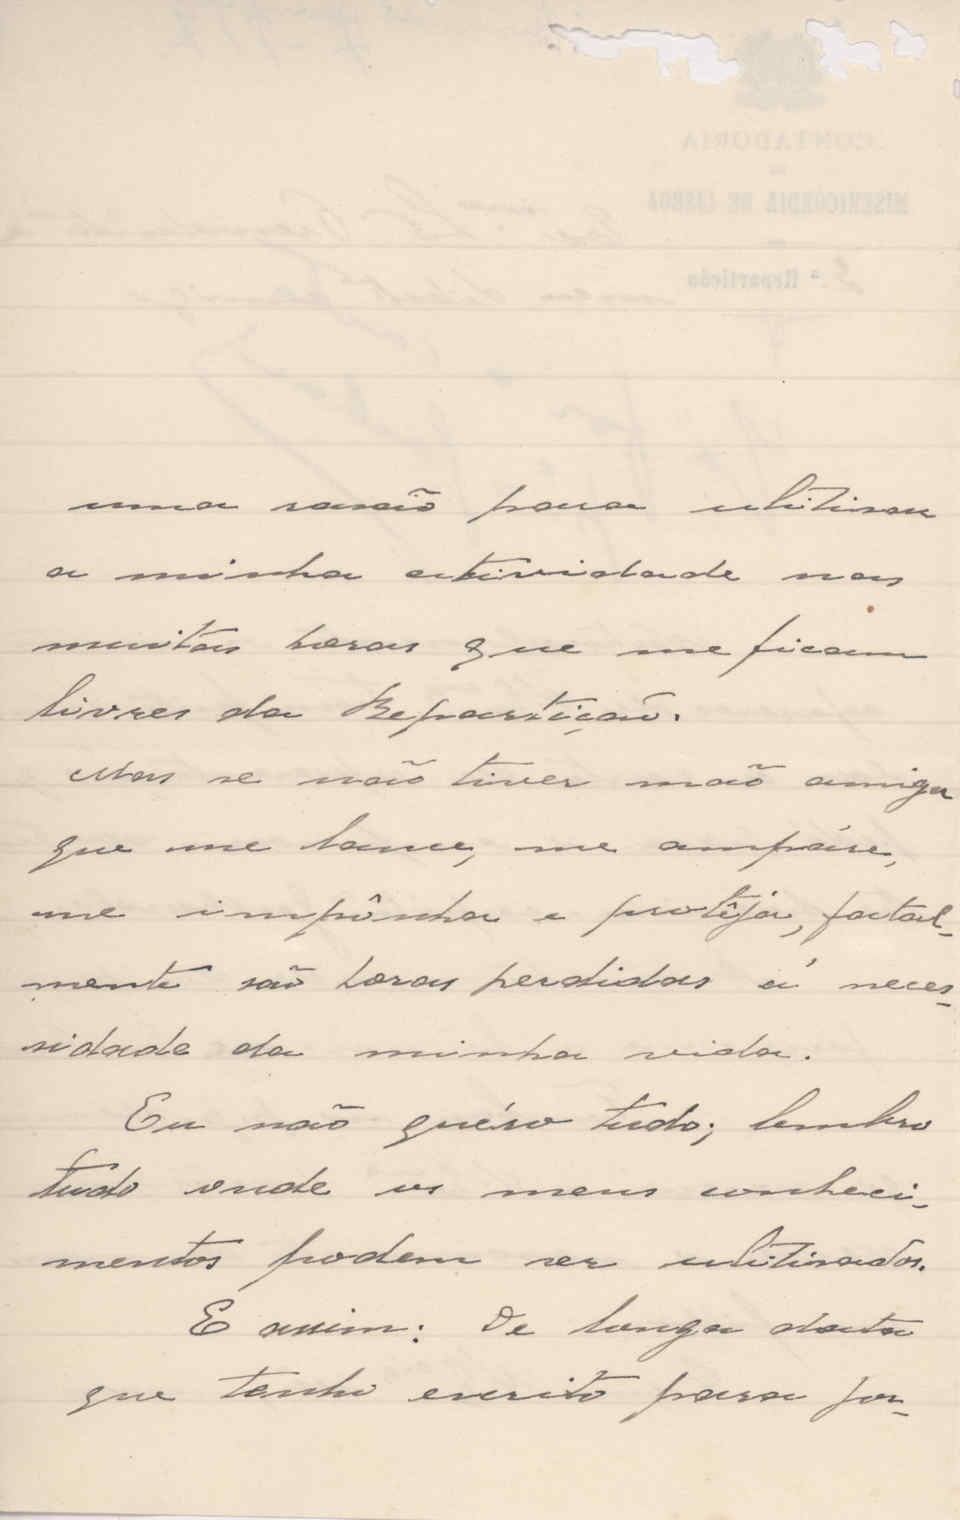 uma rasaõ para utilisar
a minha atividade nas
muitas horas que me ficam
livres da Repartiçaõ.
Mas se naõ tiver maõ amiga
que me lance, me ampáre,
me impônha e protêja, fatal-
mente saõ horas perdidas á neces-
sidade da minha vida.
Eu naõ quéro tudo; lembro
tudo onde os meus conheci-
mentos podem ser utilisados.
E assim: De longa data
que tenho escrito para jor-